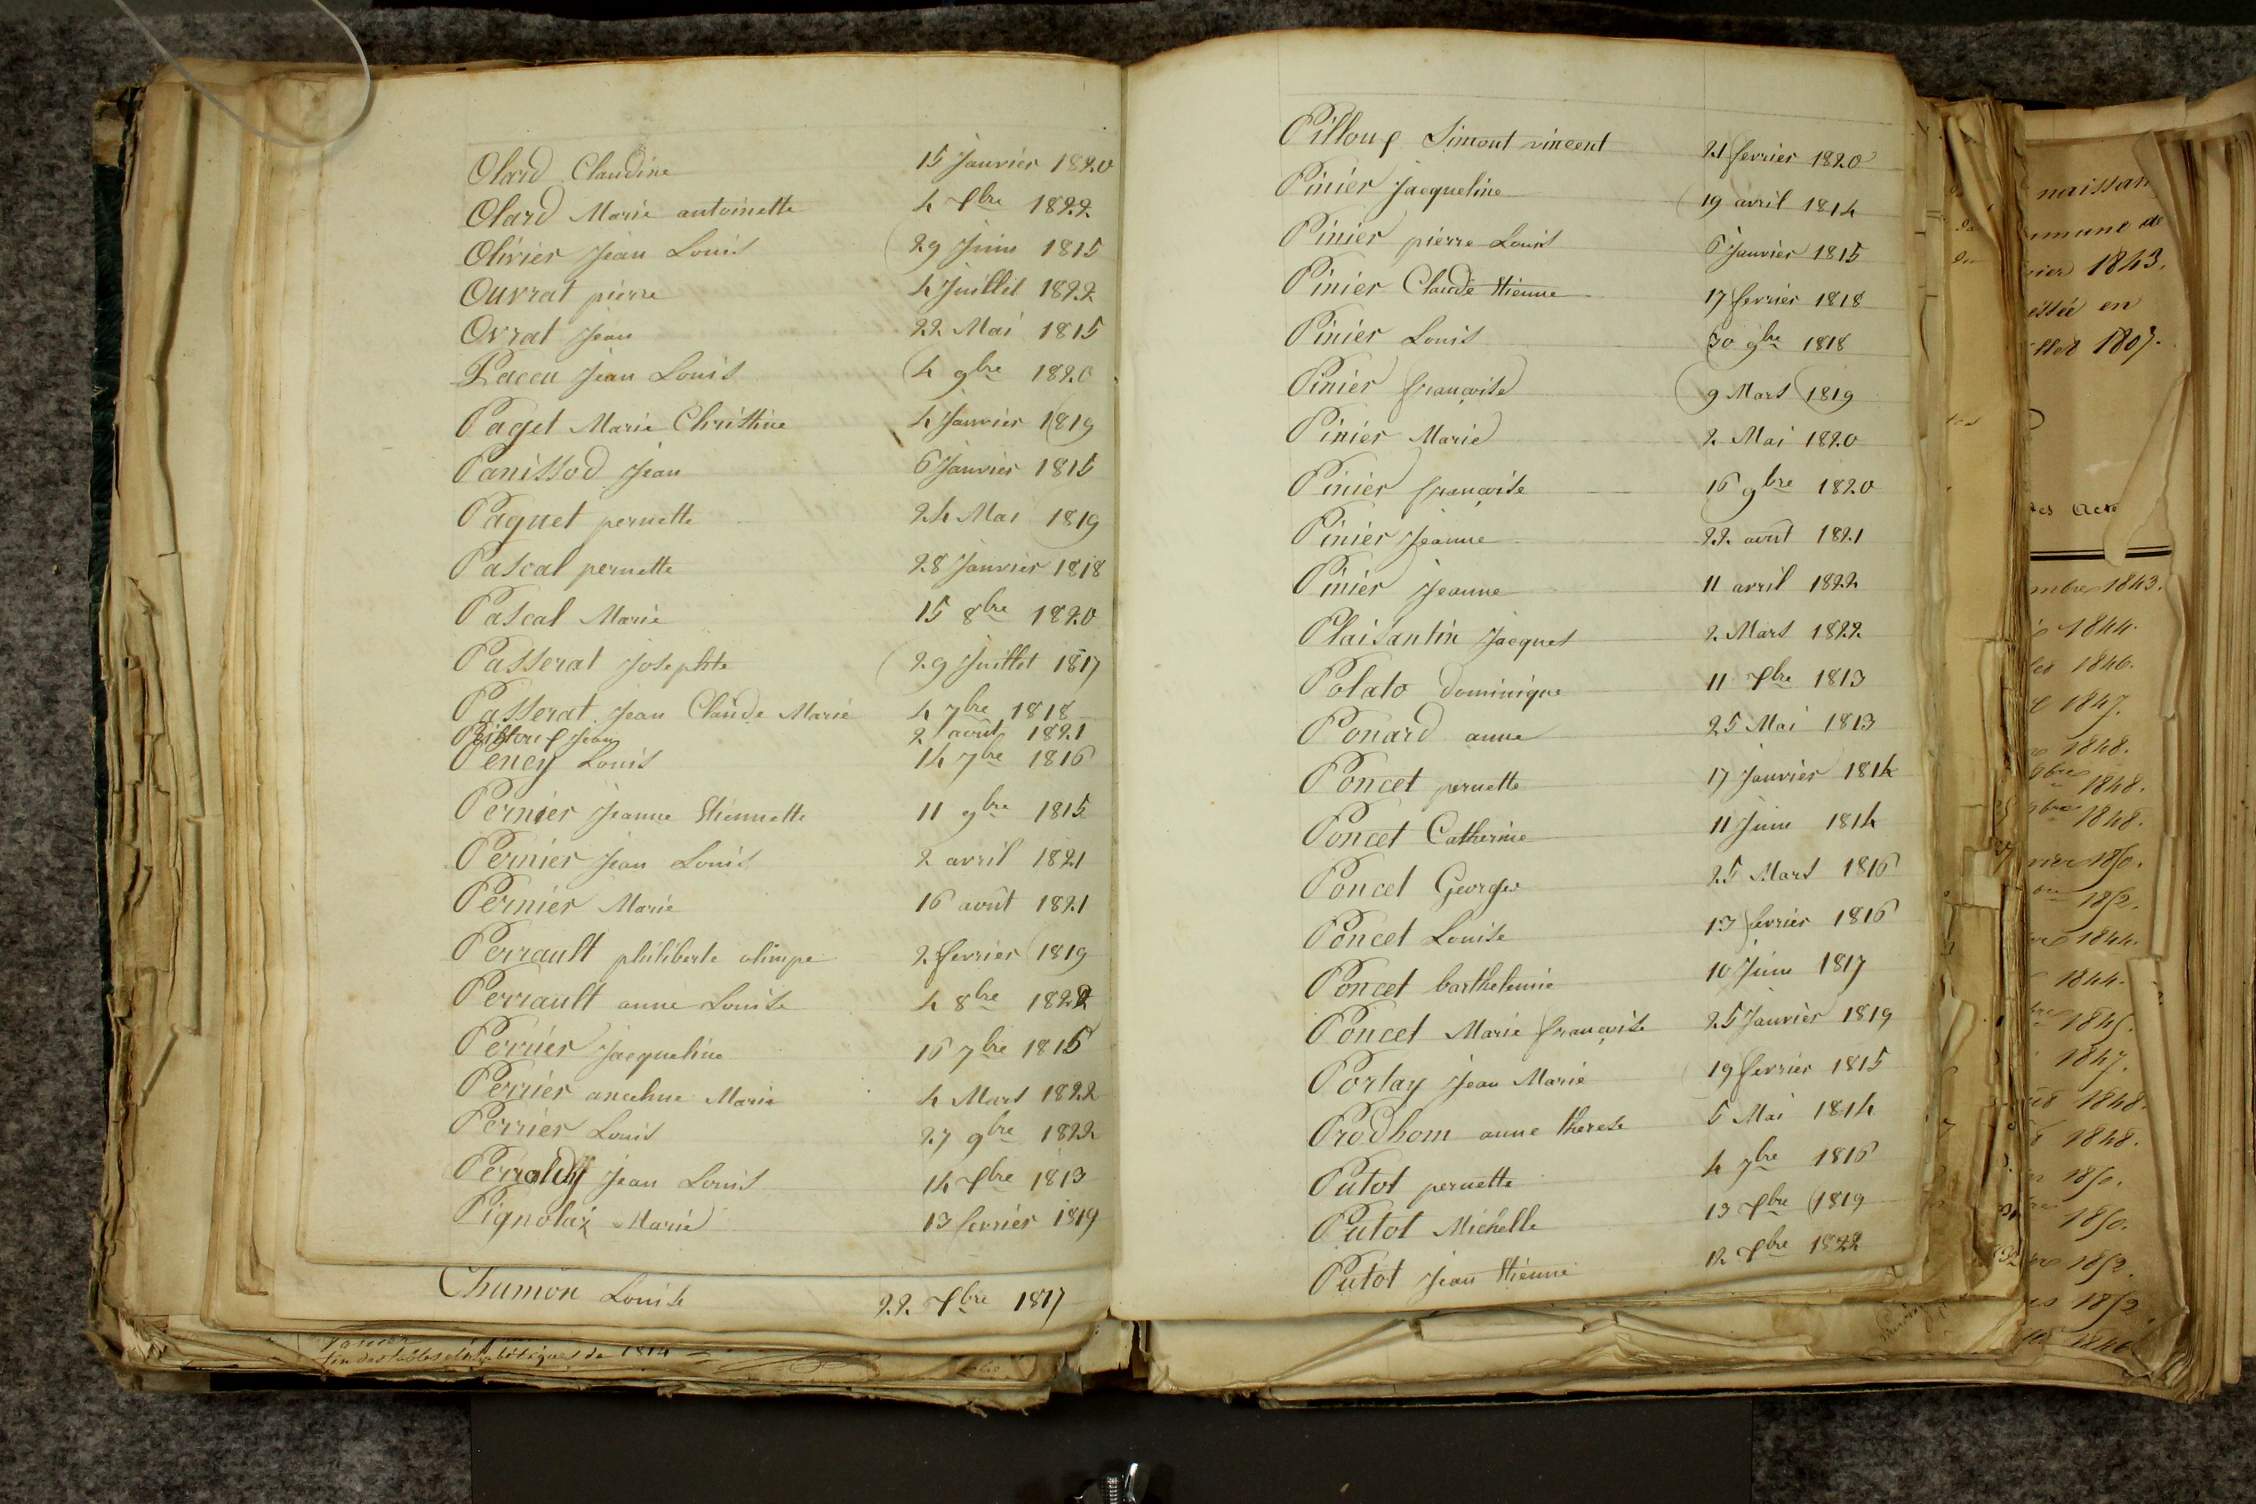 Olard Claudine 15 Janvier 1820
Olard Marie antoinette 4 Xbre 1822
Olivier Jean Louis 29 Juin 1815
Ouvrat pierre 4 Juillet 1822
Ovrat Jean 22 Mai 1815
Paccu Jean Louis 4 9bre 1820
Paget Marie Christine 4 Janvier 1819
Panissod Jean 6 Janvier 1815
Paquet pernette 24 Mai 1819
Pascal pernette 28 Janvier 1818
Pascal Marie 15 8bre 1820
Passerat Josephte 29 Juillet 1817
Passerat Jean Claude Marie 4 7bre 1818
Jean 2 août 1821
Peney Louis 14 7bre 1816
Pernier Jeanne Etiennette 11 9bre 1815
Pernier Jean Louis 2 avril 1821
Pernier Marie 16 août 1821
Perrault philiberte olimpe 2 fevrier 1819
Perrault anne Louise 4 8bre 1822
Perrier Jacqueline 16 7bre 1816
Perrier Marie 4 Mars 1822
Perrier Louis 27 9bre 1822
Jean Louis 14 Xbre 1813
Pignolax Marie 13 fevrier 1819
Chumon Louise 22 Xbre 1817
fin des tables alphabétiques de 1814
Pilloux Simont vincent 21 fevrier 1820
Pinier Jacqueline 19 avril 1814
Pinier pierre Louis 6 Janvier 1815
Pinier Claude Etienne 17 fevrier 1818
Pinier Louis 30 9bre 1818
Pinier françoise 9 Mars 1819
Pinier Marie 2 Mai 1820
Pinier françoise 16 9bre 1820
Pinier Jeanne 22 août 1821
Pinier Jeanne 11 avril 1822
Plaisantin Jacques 2 Mars 1822
Polato dominique 11 Xbre 1813
Ponard anne 25 Mai 1813
Poncet pernette 17 Janvier 1814
Poncet Catherine 11 Juin 1814
Poncet George 25 Mars 1816
Poncet Louise 13 fevrier 1816
Poncet barthelemie 10 Juin 1817
Poncet Marie françoise 25 Janvier 1819
Portay Jean Marie 19 fevrier 1815
Prodhom anne therese 5 Mai 1814
Putot pernette 4 7bre 1816
Putot Michelle 13 Xbre 1819
Putot Jean Etienne 12 Xbre 1822
1843.
en
1807.
1843.
1844.
1846.
1847.
1848.
1848.
1848.
1850.
1852.
1844.
1844.
1845.
1847.
1848.
1848.
1850.
1850.
1852.
1852
1846